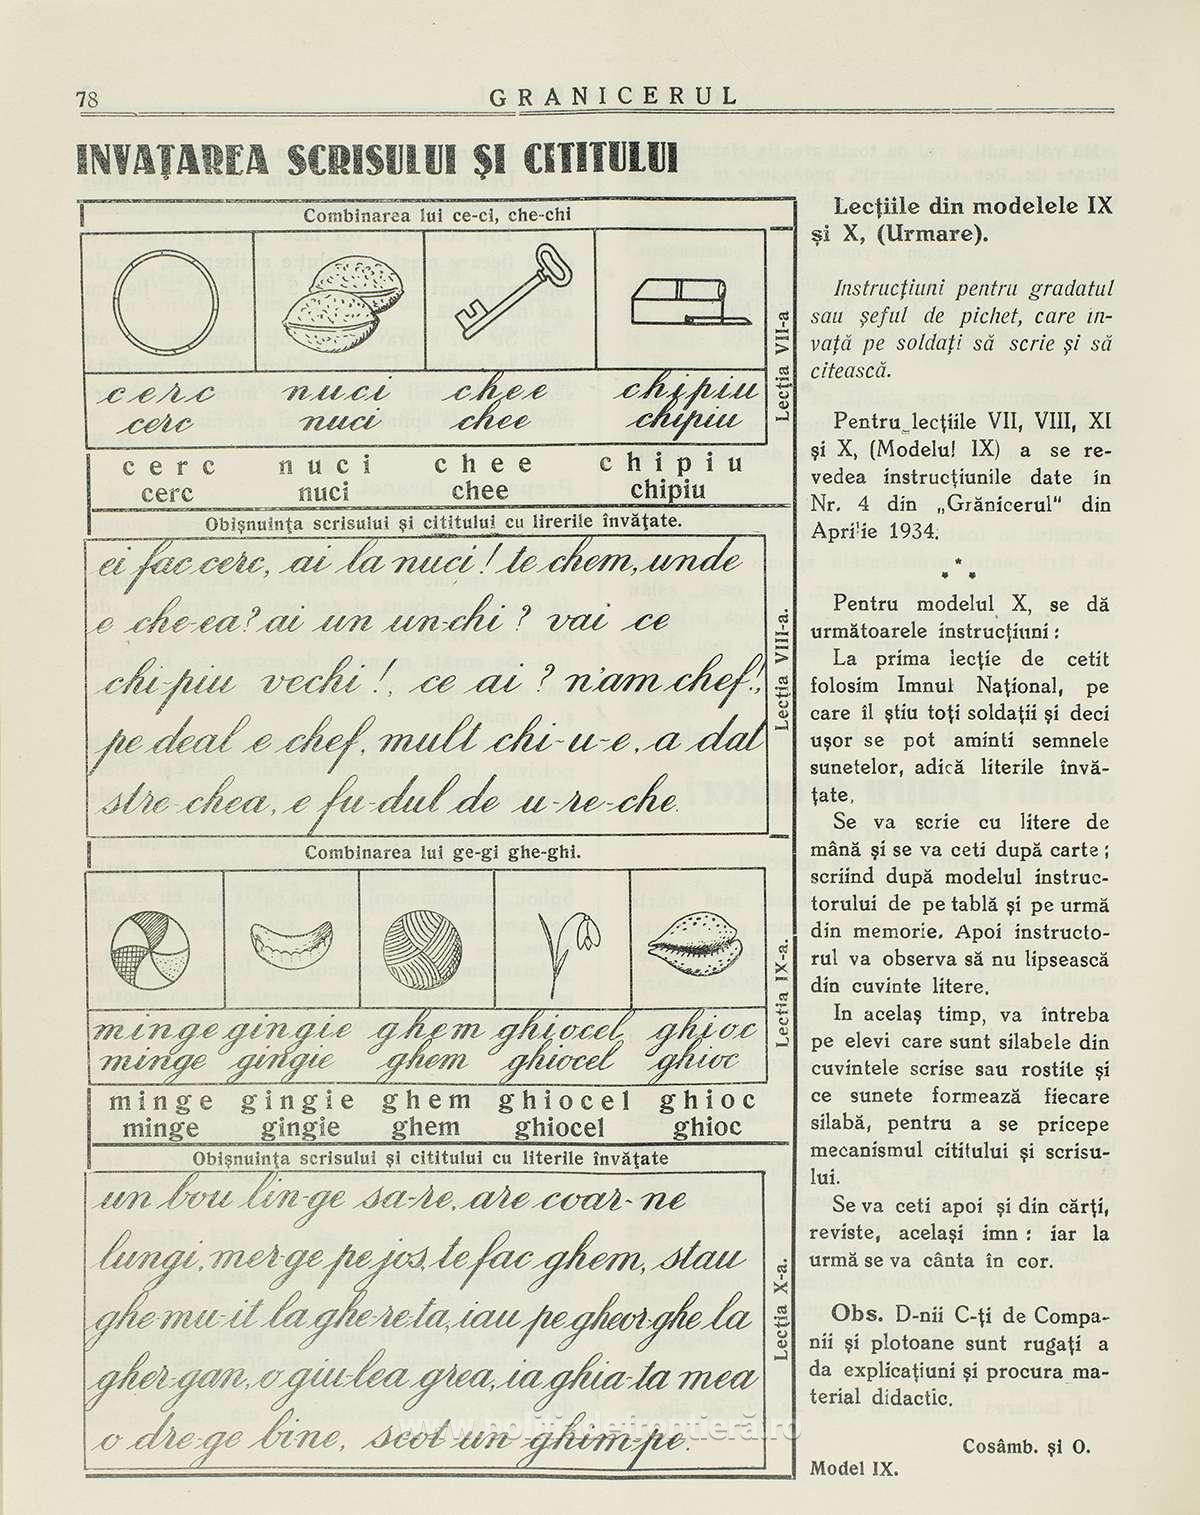 78
GRANICERUL
INVAŢAREA SCRISULUI ŞI CITITULUI
Combinarea lui ce-ci, che-chi
cerc nuci chee chipiu
cerc nuci chee chipiu
cerc nuci chee chipiu
cerc nuci chee chipiu
Lecţia VII-a
Obişnuinţa scrisului şi cititului cu lirerile învăţate.
ei fac cerc, ai la nuci! te chem, unde
e che-ea? ai un un-chi? vai ce
chi-piu vechi!, ce ai? n'am chef!,
pe deal e chef, mult chi-u-e, a dat
stre-chea, e fu-dul de u-re-che.
Lecţia VIII-a.
Combinarea lui ge-gi ghe-ghi.
minge gingie ghem ghiocel ghioc
minge gingie ghem ghiocel ghioc
minge gingie ghem ghiocel ghioc
minge gingie ghem ghiocel ghioc
Lecţia IX-a.
Obişnuinţa scrisului şi cititului cu literile învăţate
un bou lin-ge sa-re, are coar-ne
lungi, mer-ge pe jos, te fac ghem, stau
ghe mu-it la ghe-re-ta, iau pe gheor-ghe la
gher-gan, o giu-lea grea, ia ghia-ta mea
o dre-ge bine, scot un ghim-pe.
Lecţia X-a.
Lecţiile din modelele IX
şi X, (Urmare).
Instrucţiuni pentru gradatul
sau şeful de pichet, care in-
vaţă pe soldaţi să scrie şi să
citească.
Pentru lecţiile VII, VIII, XI
şi X, (Modelul IX) a se re-
vedea instrucţiunile date in
Nr. 4 din „Grănicerul" din
Aprilie 1934.
* * *
Pentru modelul X, se dă
următoarele instrucţiuni:
La prima lecţie de cetit
folosim Imnul Naţional, pe
care îl ştiu toţi soldaţii şi deci
uşor se pot aminti semnele
sunetelor, adică literile învă-
ţate.
Se va scrie cu litere de
mână şi se va ceti după carte;
scriind după modelul instruc-
torului de pe tablă şi pe urmă
din memorie. Apoi instructo-
rul va observa să nu lipsească
din cuvinte litere.
In acelaş timp, va întreba
pe elevi care sunt silabele din
cuvintele scrise sau rostite şi
ce sunete formează fiecare
silabă, pentru a se pricepe
mecanismul cititului şi scrisu-
lui.
Se va ceti apoi şi din cărţi,
reviste, acelaşi imn: iar la
urmă se va cânta în cor.
Obs. D-nii C-ţi de Compa-
nii şi plotoane sunt rugaţi a
da explicaţiuni şi procura ma-
terial didactic.
Cosâmb. şi O.
Model IX.
www.politiadefrontieră.ro